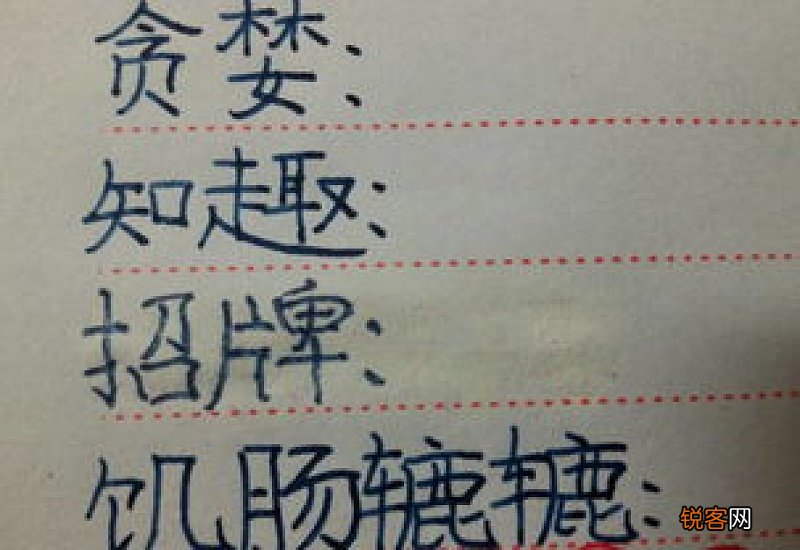 贪婪：
知趣：
招牌：
饥肠辘辘：
锐客网